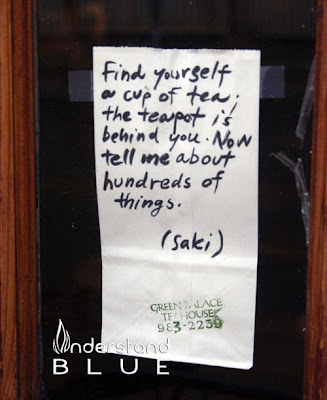 Find yourself
a cup of tea;
the teapot is
behind you. Now
tell me about
hundreds of
things.
(Saki)
GREEN PALACE
TEAHOUSE
983-2239
Understand
BLUE